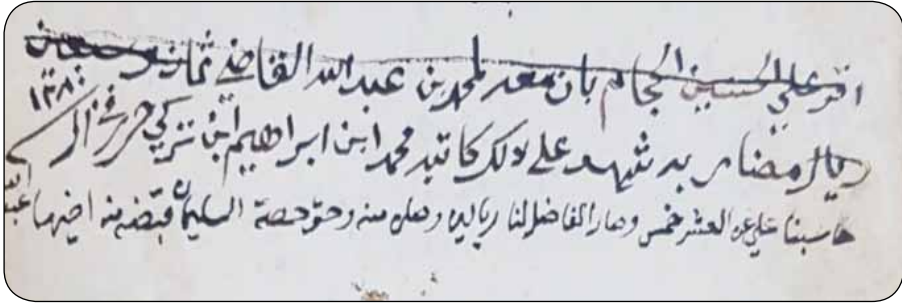 اقر علي الحسين الحجام بان معه لمحمد بن عبدالله القاضي ثمان وسبعين
ريال مضاربه شهد على ذلك كاتبه محمد ابن ابراهيم ابن تركي حرر في
حاسبنا علي عن العشر خمس وصار الفاضل لنا ريالين وصلن منه وحق حصة السليمان قبضه منه اخيها عبدالله